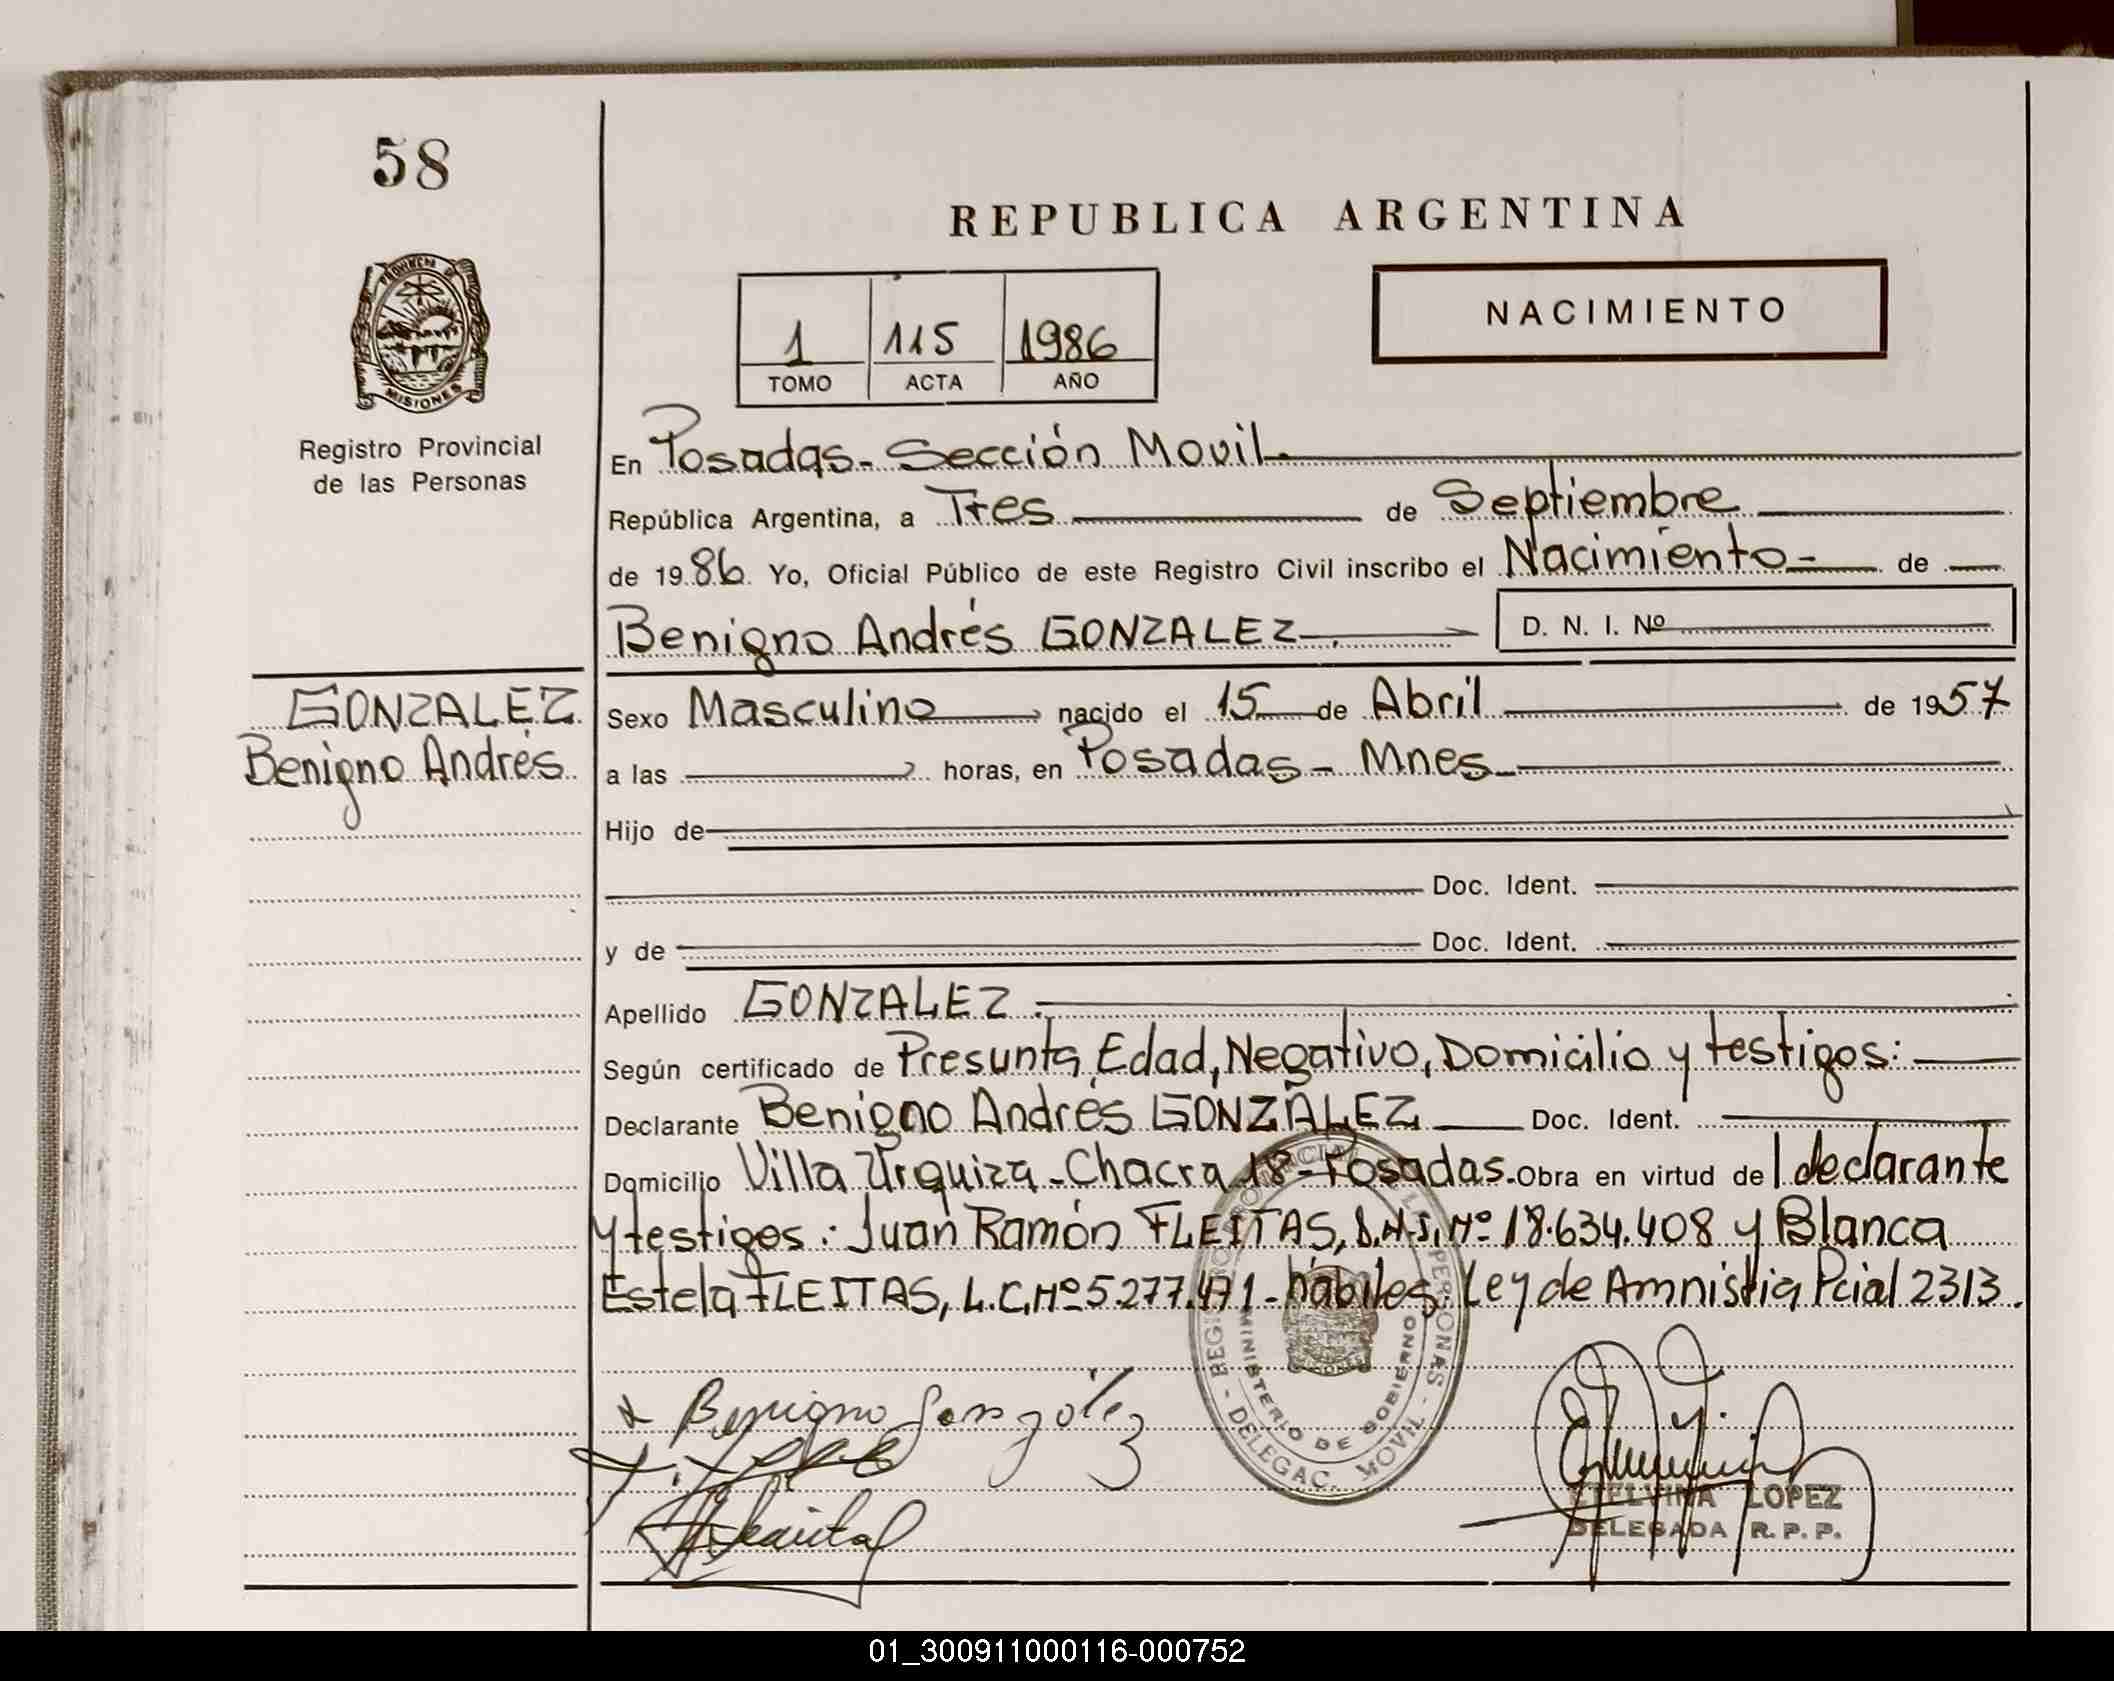 58
REPUBLICA ARGENTINA
PROVINCIA DE
MISIONES
Registro Provincial
de las Personas
1 115 1986
TOMO ACTA AÑO
NACIMIENTO
En Posadas - Sección Movil.
República Argentina, a Tres de Septiembre
de 1986 Yo, Oficial Público de este Registro Civil inscribo el Nacimiento - de
Benigno Andrés GONZALEZ D. N. I. Nº
GONZALEZ
Benigno Andrés
Sexo Masculino nacido el 15 de Abril de 1957
a las horas, en Posadas - Mnes -
Hijo de
Doc. Ident.
y de Doc. Ident.
Apellido GONZALEZ.
Según certificado de Presunta Edad, Negativo, Domicilio y testigos:
Declarante Benigno Andrés GONZALEZ Doc. Ident.
Domicilio Villa Urquiza - Chacra 18 - Posadas. Obra en virtud de l declarante
y testigos: Juan Ramón FLEITAS, D.N.I. Nº 18.634.408 y Blanca
Estela FLEITAS, L.C. Nº 5.277.471 - hábiles. Ley de Amnistia Pcial 2313.
REGISTRO PROVINCIAL DE LAS PERSONAS - DELEGAC. MOVIL -
MINISTERIO DE GOBIERNO
Benigno Gonzólez
ETELVINA LOPEZ
DELEGADA R. P. P.
01_300911000116-000752